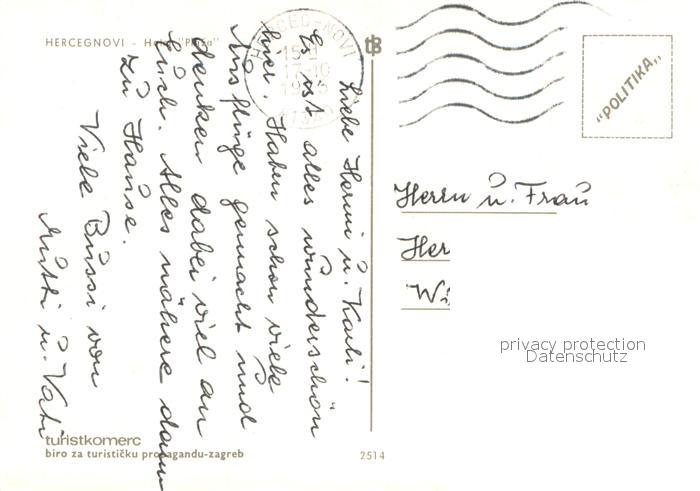 HERCEGNOVI - Hotel "Plaža"
Liebe Hermi u. Karli!
Es ist alles wunderschön
hier. Haben schon viele
Ausflüge gemacht und
denken dabei viel an
Euch. Alles nähere dann
zu Hause.
Viele Bussi von
Mutti u. Vati
HERCEG-NOVI
17-10
"POLITIKA„
Herrn u. Frau
Her
Wi
privacy protection
Datenschutz
turistkomerc
biro za turističku propagandu-zagreb
2514